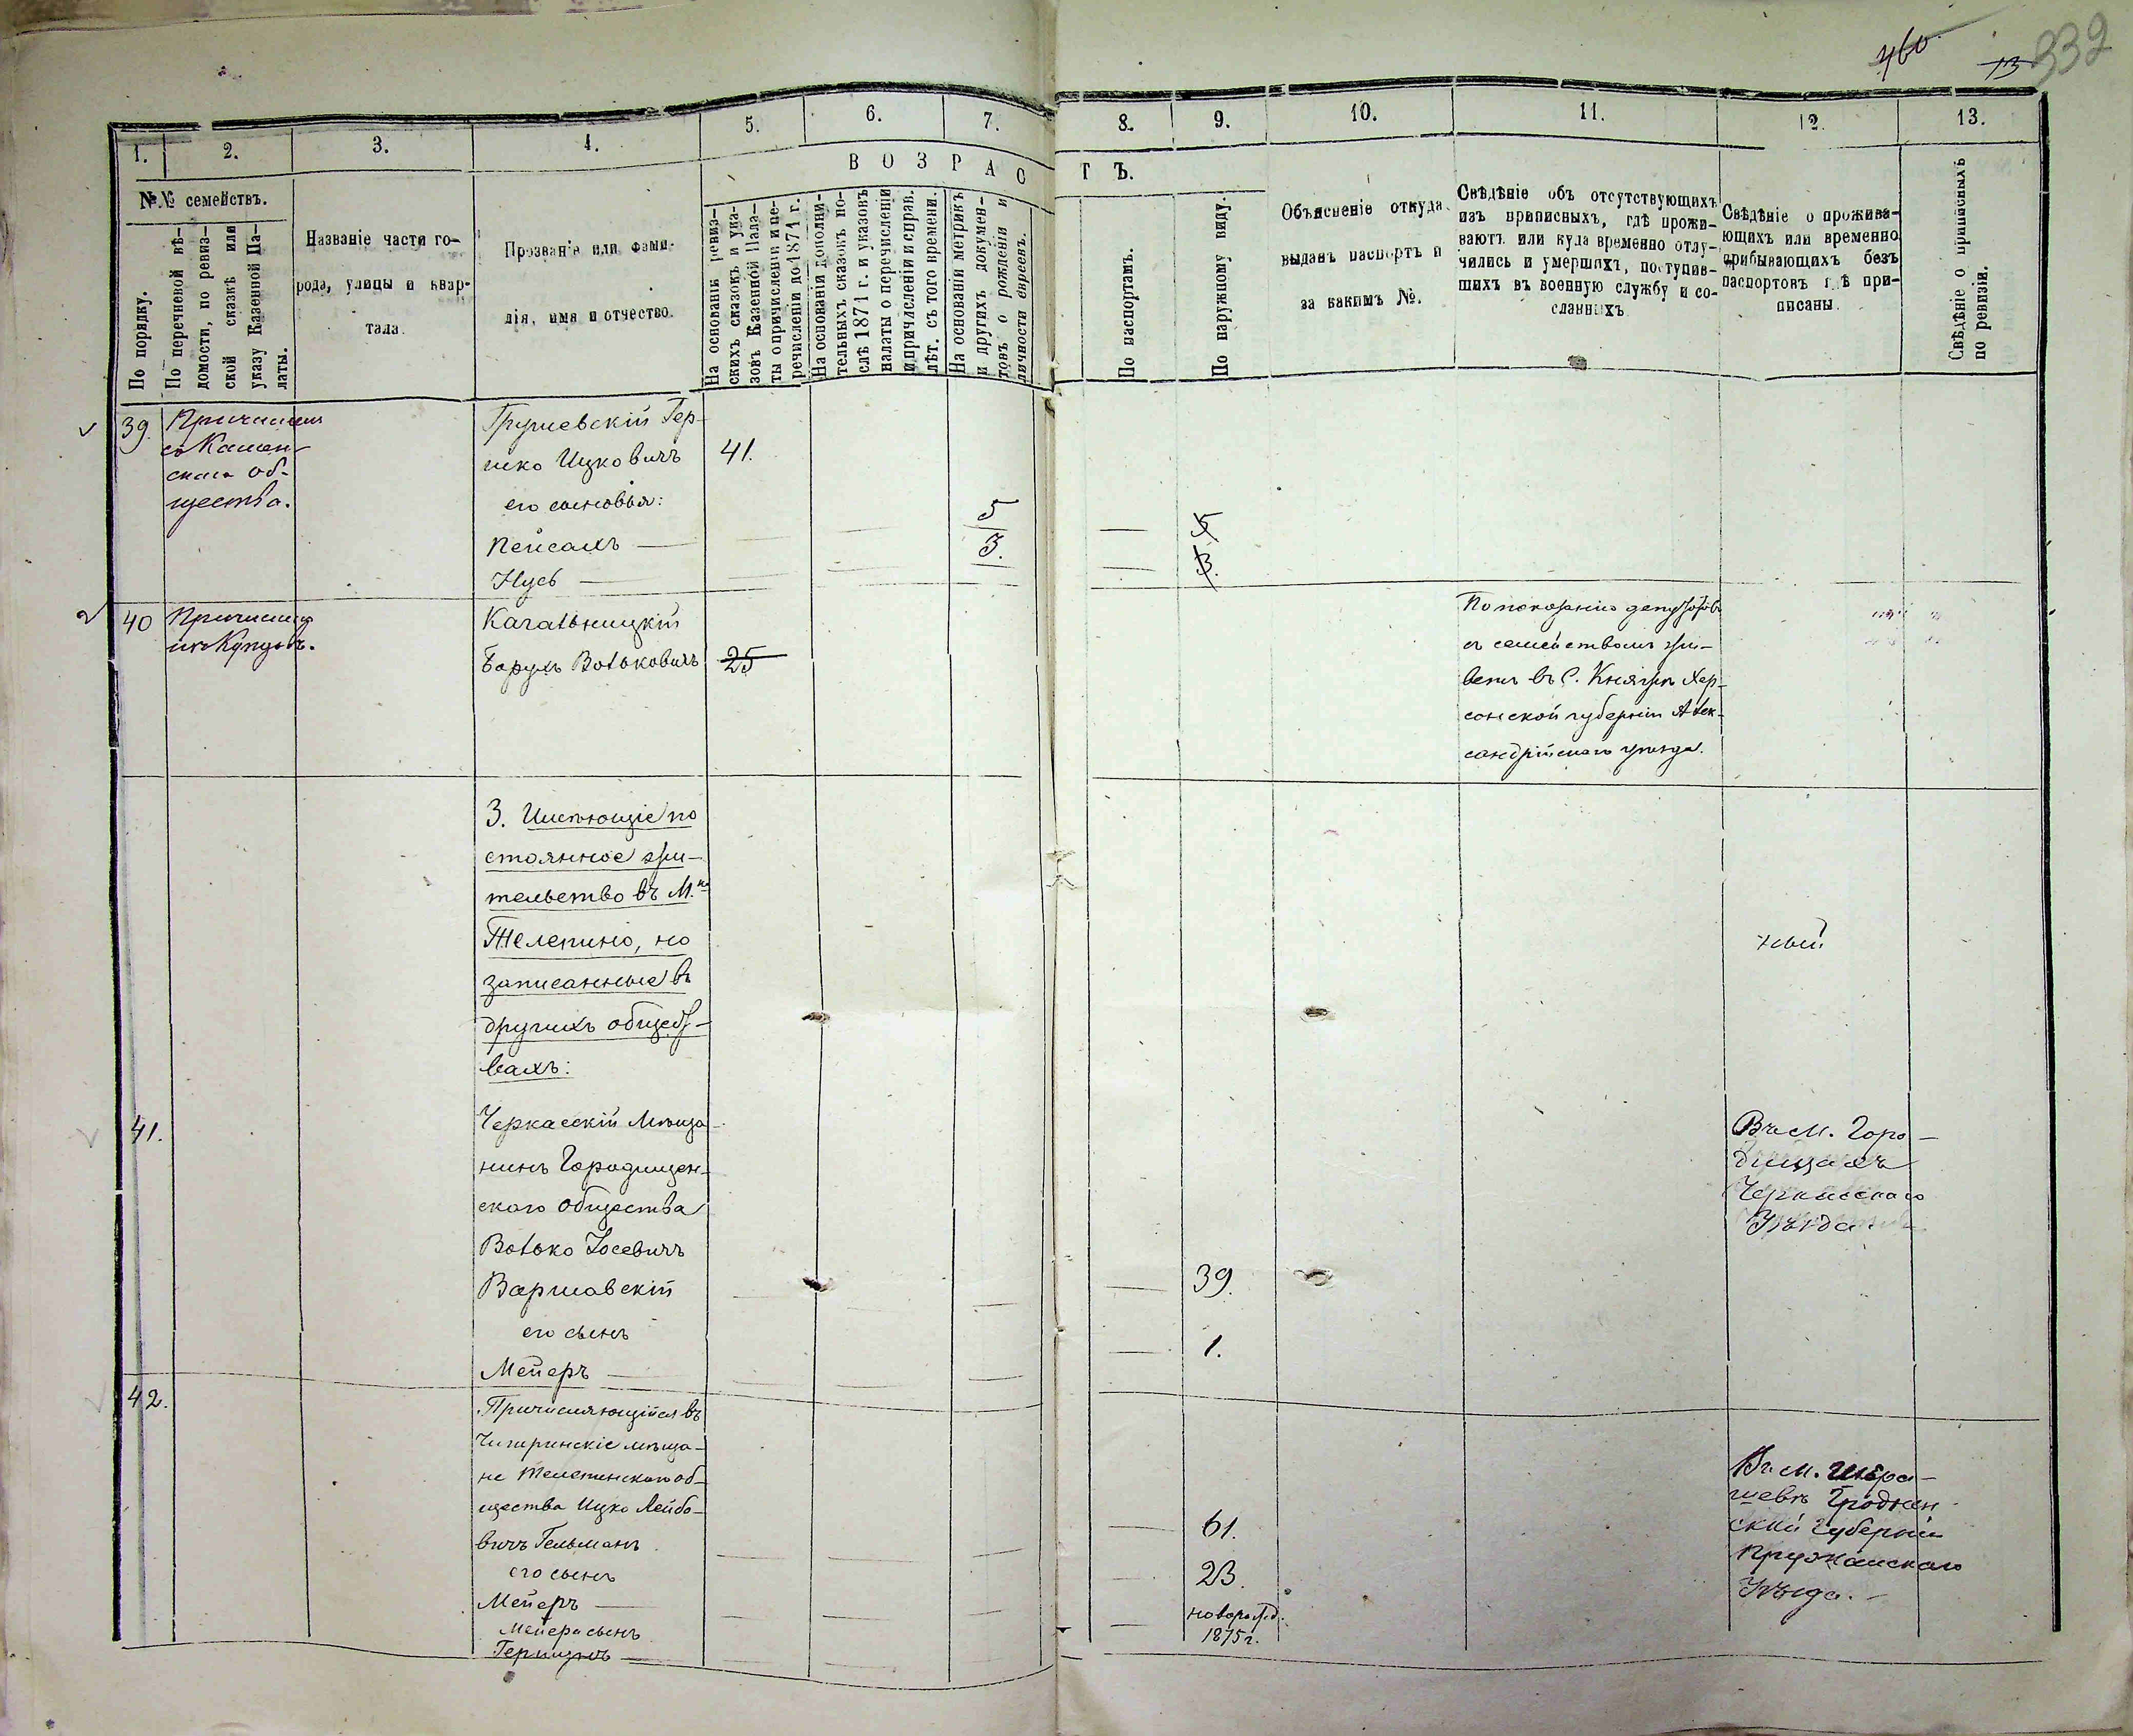 460
13
332
1.
2.
3.
4.
5.
6.
7.
8.
9.
10.
11.
12.
13.
В О З Р А С Т Ъ.
№№ семействъ.
По порядку.
По перечневой вѣ-
домости, по ревиз-
ской сказкѣ или
указу Казенной Па-
латы.
Названіе части го-
рода, улицы и квар-
тала.
Прозваніе или фами-
лія, имя и отчество.
На основаніи ревиз-
скихъ сказокъ и ука-
зовъ Казенной Пала-
ты о причисленіи и пе-
речисленіи до 1871 г.
На основаніи дополни-
тельныхъ сказокъ по-
слѣ 1871 г. и указовъ
палаты о перечисленіи
и причисленіи справ.
лѣт. съ того времени.
На основаніи метрикъ
и другихъ докумен-
товъ о рожденіи и
личности евреевъ.
По паспортамъ.
По наружному виду.
Объясненіе откуда
выданъ паспортъ и
за какимъ №.
Свѣдѣніе объ отсутствующихъ
изъ приписныхъ, гдѣ прожи-
ваютъ или куда временно отлу-
чились и умершихъ, поступив-
шихъ въ военную службу и со-
сланныхъ
Свѣдѣніе о прожива-
ющихъ или временно
прибывающихъ безъ
паспортовъ гдѣ при-
писаны.
Свѣдѣніе о приписныхъ
по ревизіи.
39.
съ Камен-
скаго об-
щества.
Грушевскій Гер-
шко Ицковичъ
41.
его сыновья:
Пейсахъ —
5
5
Нусь —
3.
3.
40
Качальницкій
Борухъ Волькович
25
По показанію депутатовъ
съ семействомъ жи-
ветъ въ С. Княжъ Хер-
сонской губерніи Алек-
сандрійскаго уѣзда.
3. Имѣющіе по
стоянное жи-
тельство въ М.ке
Телепино, но
записанные въ
другихъ общест-
вахъ:
41.
Черкасскій мѣща-
нинъ Городищен-
скаго общества
Волько Іосевичъ
Варшавскій
39.
его сынъ
Мейеръ —
1.
Въ М. Горо-
дищахъ
Черкасскаго
Уѣзда.
42.
Причисляющійся въ
Чигиринскіе мѣща-
не Телепинскаго об-
щества Ицко Лейбо-
вичъ Гельманъ
61.
его сынъ
Мейеръ —
23.
Мейера сынъ
Гершъ —
новорожд.
1875 г.
Въ М.
Гроднен-
ской Губерніи
Пружанскаго
Уѣзда. —